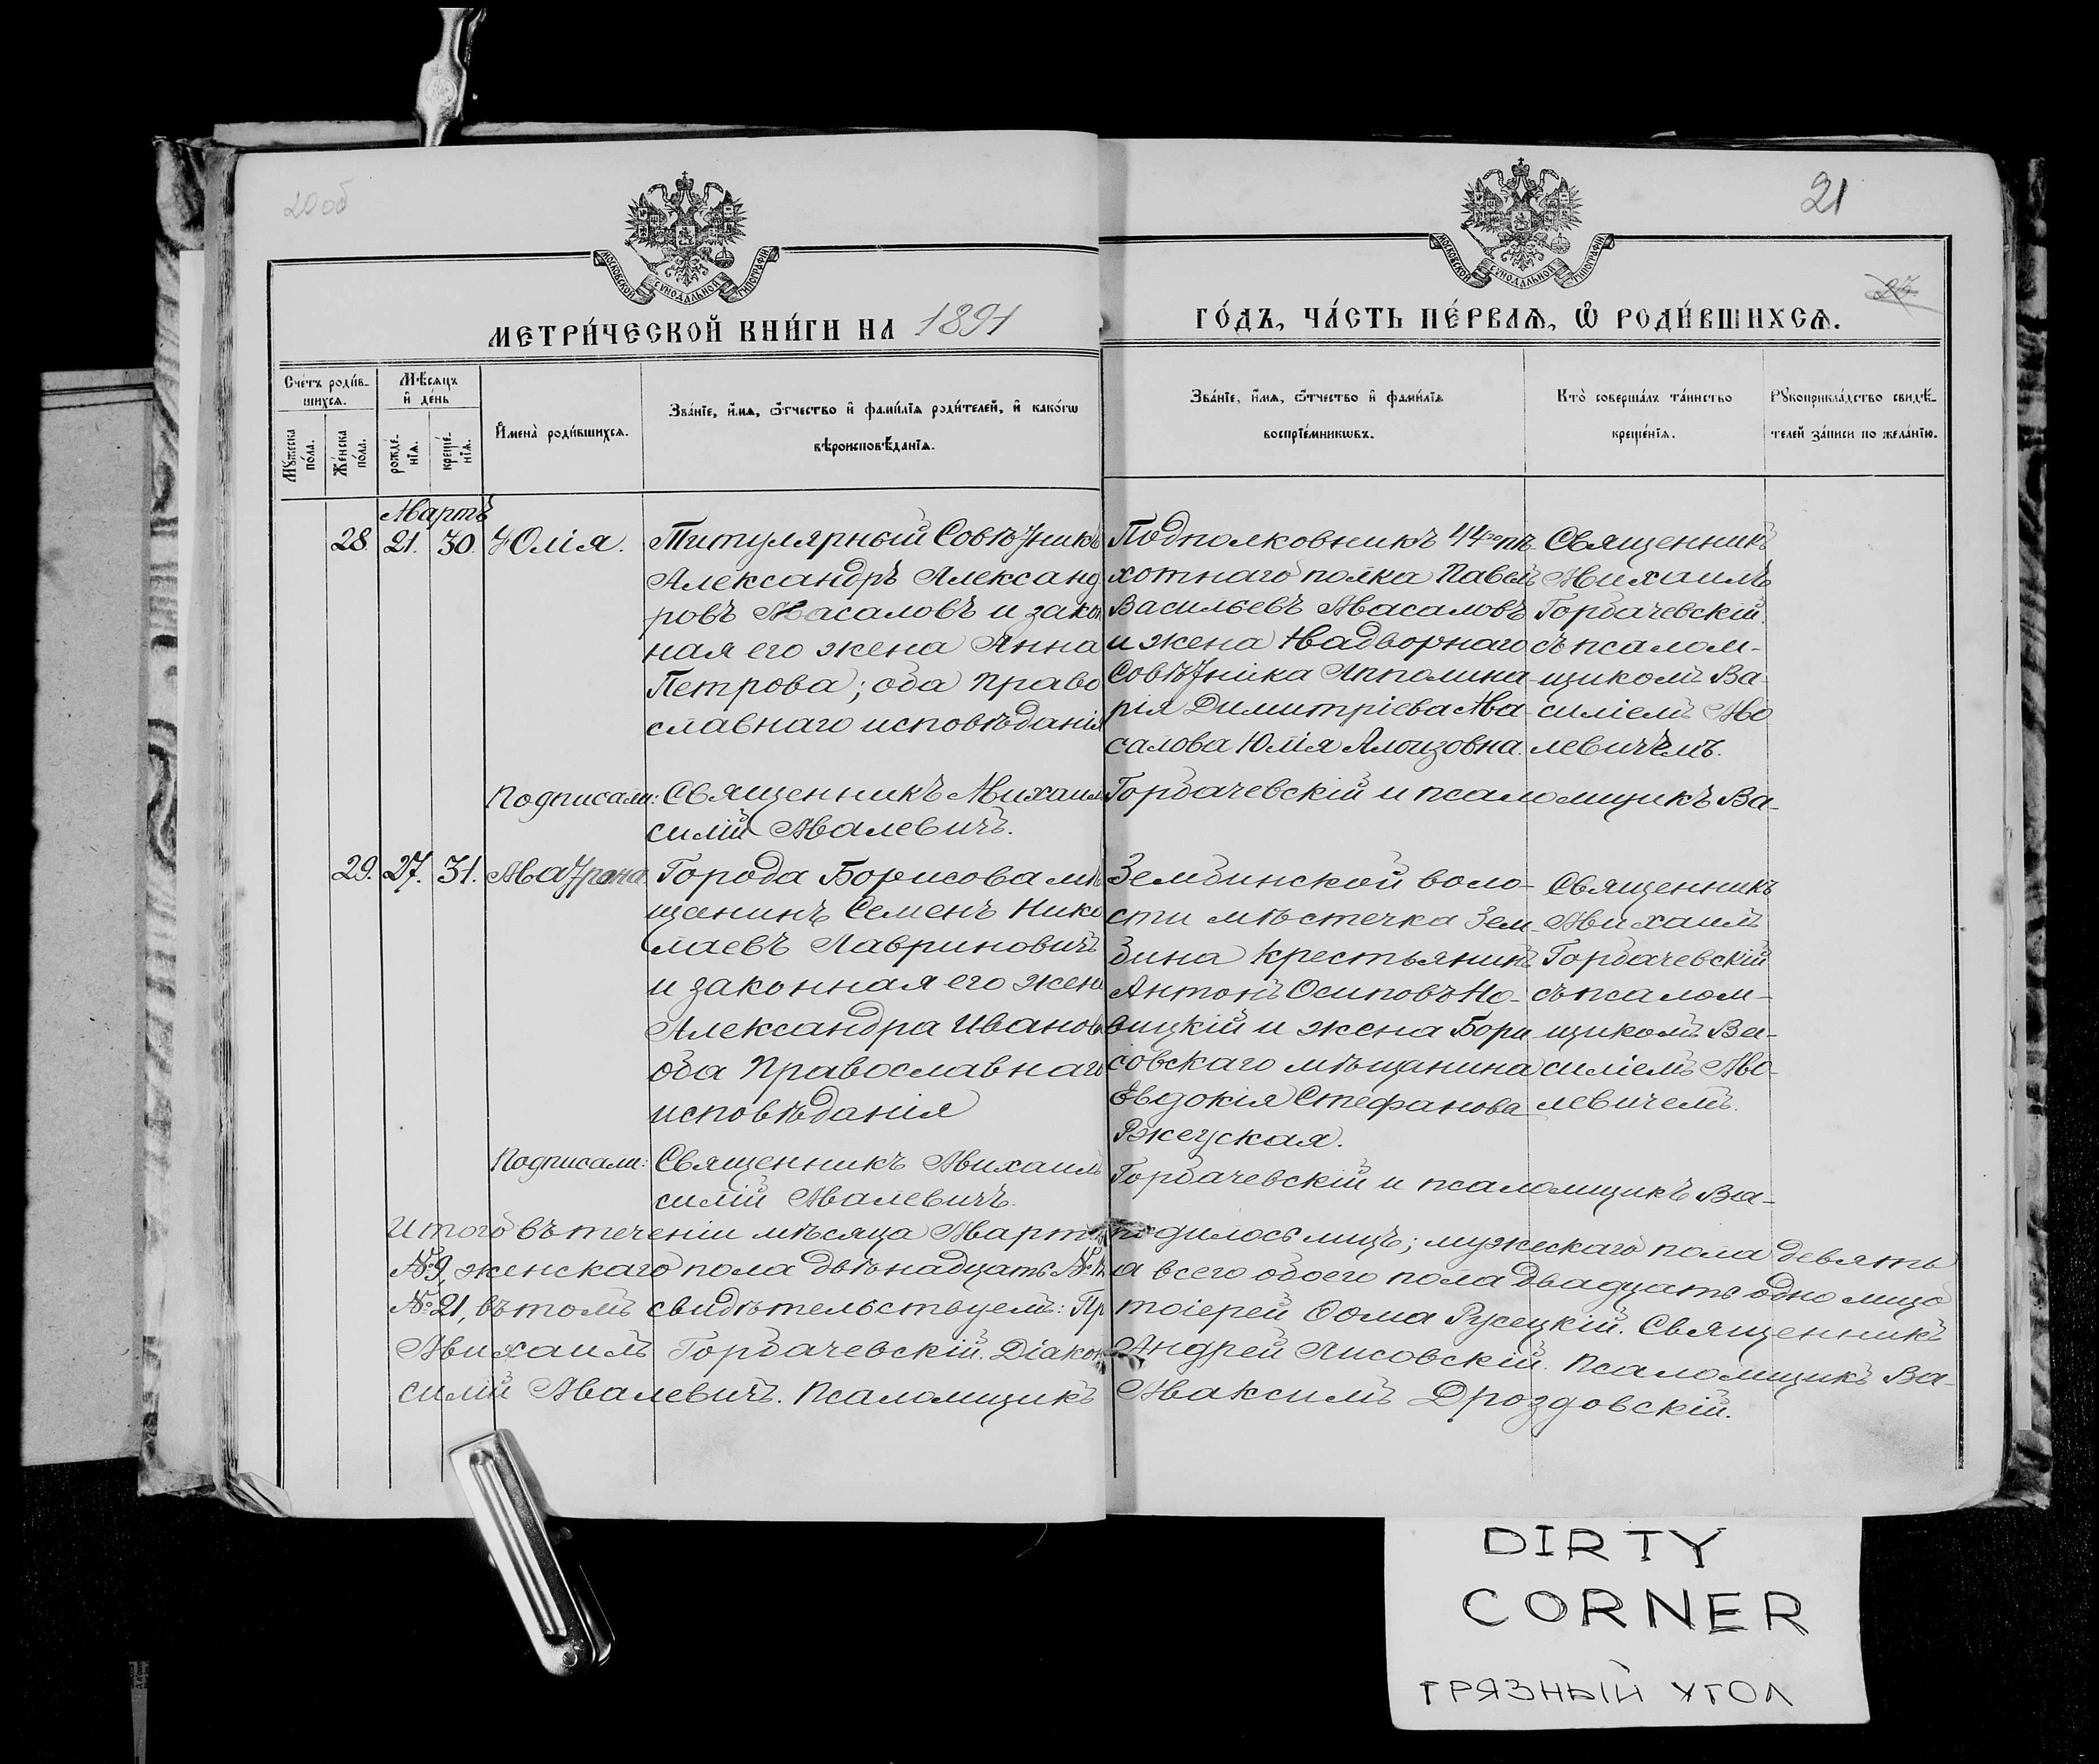 20об
21
27
МОСКОВСКОЙ СУНОДАЛЬНОЙ ТИПОГРАФІИ
МОСКОВСКОЙ СУНОДАЛЬНОЙ ТИПОГРАФІИ
МЕТРИ́ЧЕСКОЙ КНИ́ГИ НА 1891
ГО́ДЪ, ЧА́СТЬ ПЕ́РВАѦ, Ѡ҆ РОДИ́ВШИХСѦ.
Сче́тъ роди́в-
шихсѧ.
Мѣ́сѧцъ
и҆ де́нь
Мꙋ́жеска
по́ла.
Же́нска
по́ла.
рожде́-
нїѧ.
креще́-
нїѧ.
И҆мена̀ роди́вшихсѧ.
Зва́нїе, и҆́мѧ, ѻ҆́тчество и҆ фами́лїѧ роди́телей, и҆ како́гѡ
вѣроисповѣ́данїѧ.
Зва́нїе, и҆́мѧ, ѻ҆́тчество и҆ фами́лїѧ
воспрїе́мникѡвъ.
Кто̀ соверша́лъ та́инство
креще́нїѧ.
Рꙋкоприкла́дство свидѣ́-
телей за́писи по жела́нїю.
Мартъ
28. 21. 30. Юлія. Титулярный Совѣтникъ
Александръ Александ
ровъ Масаловъ и закон
ная его жена Анна
Петрова; оба право
славнаго исповѣданія
Подполковникъ 44го пѣ-
хотнаго полка Павелъ
Васильевъ Масаловъ
и жена Надворнаго
Совѣтника Апполина
рія Димитріева Ма-
салова Юлія Алоизовна.
Священникъ
Михаилъ
Горбачевскій
съ псалом-
щикомъ Ва-
силіемъ Мо
левичемъ.
Подписали: Священникъ Михаилъ Горбачевскій и псаломщикъ Ва-
силій Малевичъ.
29. 27. 31. Матрона. Города Борисова мѣ
щанинъ Семенъ Нико
лаевъ Лавриновичъ
и законная его жена
Александра Иванова
оба Православнаго
исповѣданія
Зембинской воло-
сти мѣстечка Зем-
бина крестьянинъ
Антонъ Осиповъ Но-
вицкій и жена Бори
совскаго мѣщанина
Евдокія Стефанова
Ржеуская.
Священникъ
Михаилъ
Горбачевскій
съ псалом-
щикомъ Ва-
силіемъ Мо-
левичемъ.
Подписали: Священникъ Михаилъ Горбачевскій и псаломщикъ Ва-
силій Малевичъ.
Итого въ теченіи мѣсяца Марта родилось лицъ; мужескаго пола девять
№9, женскаго пола двѣнадцать №12 а всего обоего пола двадцать одно лицо
№21, въ томъ свидѣтельствуемъ: Протоіерей Ѳома Русецкій. Священникъ
Михаилъ Горбачевскій. Діаконъ Андрей Лисовскій. Псаломщикъ Ва-
силій Малевичъ. Псаломщикъ Максимъ Дроздовскій.
DIRTY
CORNER
ГРЯЗНЫЙ УГОЛ